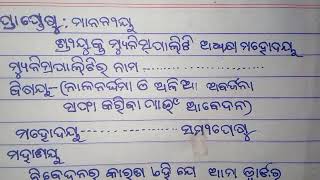 ପ୍ରାପ୍ତେଷୁ : ମାନନୀୟ
ଶ୍ରୀଯୁକ୍ତ ମ୍ୟୁନିସିପାଲିଟି ଅଧ୍ୟକ୍ଷ ମହୋଦୟ
ମ୍ୟୁନିସିପାଲିଟିର ନାମ ....................
ବିଷୟ:- (ନାଳନର୍ଦ୍ଦମା ଓ ଅଳିଆ ଅବର୍ଜନା
ସଫା କରିବା ପାଇଁ ଆବେଦନ)
ମହୋଦୟ .................... ସମୀପେଷୁ
ମହାଶୟ
ନିବେଦନର କାରଣ ଏହି ଯେ ଆମ ୱାର୍ଡର